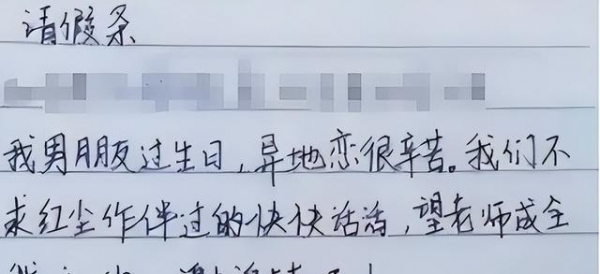 请假条
我男朋友过生日,异地恋很辛苦。我们不
求红尘作伴过的快快活活,望老师成全